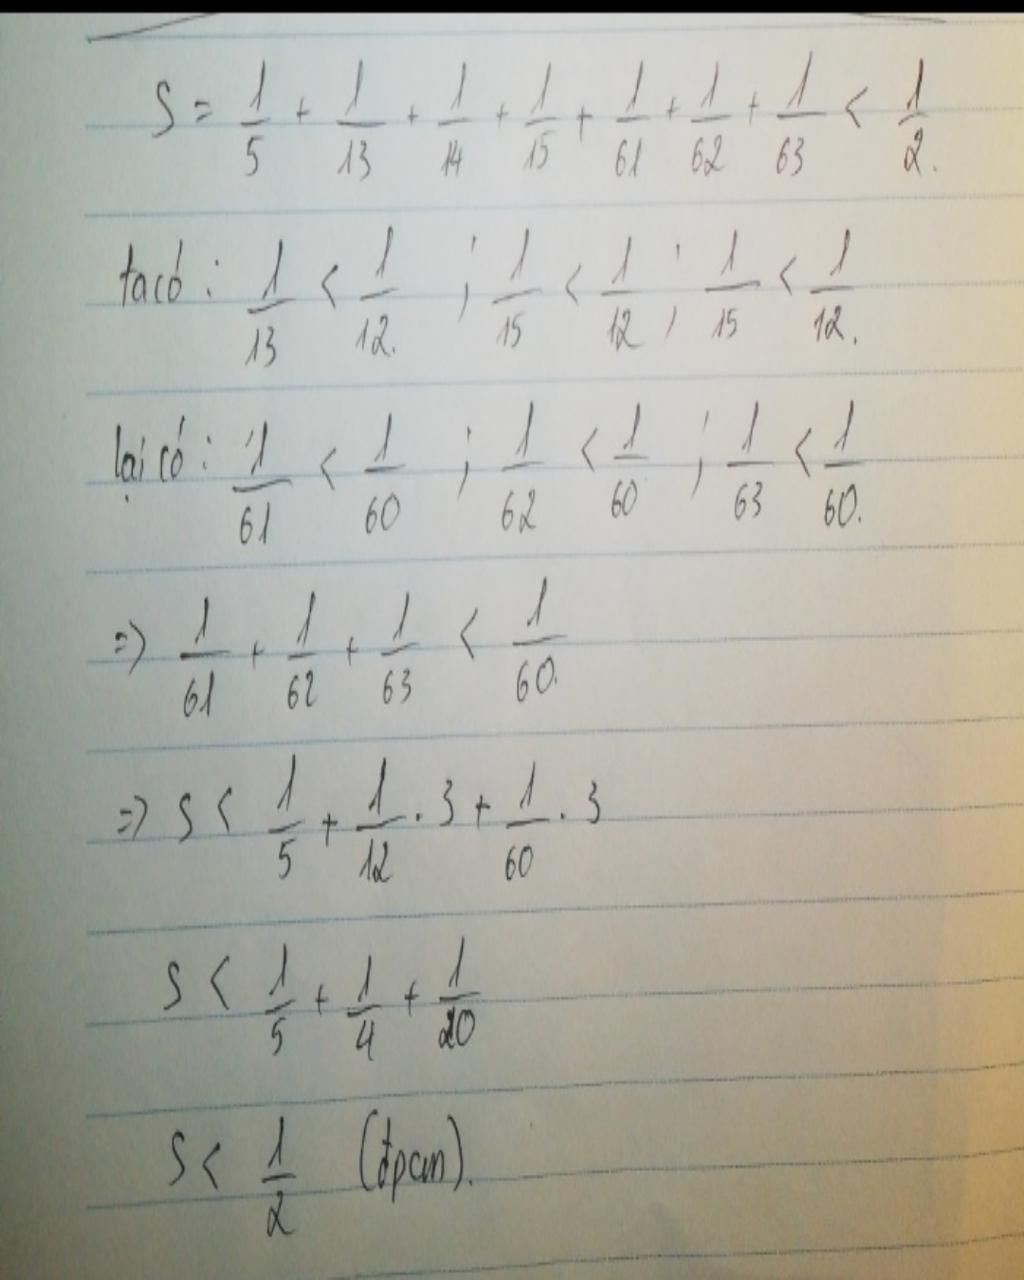 S = 1/5 + 1/13 + 1/14 + 1/15 + 1/61 + 1/62 + 1/63 < 1/2.
ta có : 1/13 < 1/12. ; 1/15 < 1/12 ; 1/15 < 1/12.
lại có : 1/61 < 1/60 ; 1/62 < 1/60 ; 1/63 < 1/60.
=> 1/61 + 1/62 + 1/63 < 1/60.
=> S < 1/5 + 1/12 . 3 + 1/60 . 3
S < 1/5 + 1/4 + 1/20
S < 1/2 (đpcm).